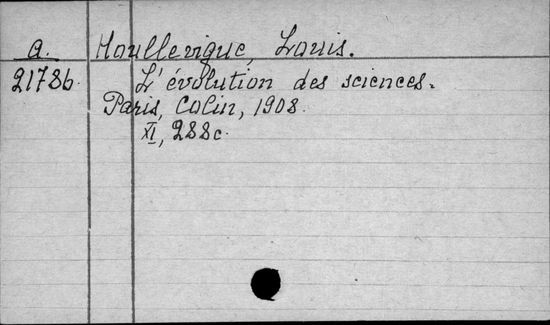 a. Houllevigue, Louis.
21786. L'évolution des sciences.
Paris, Colin, 1908.
XI, 288c.